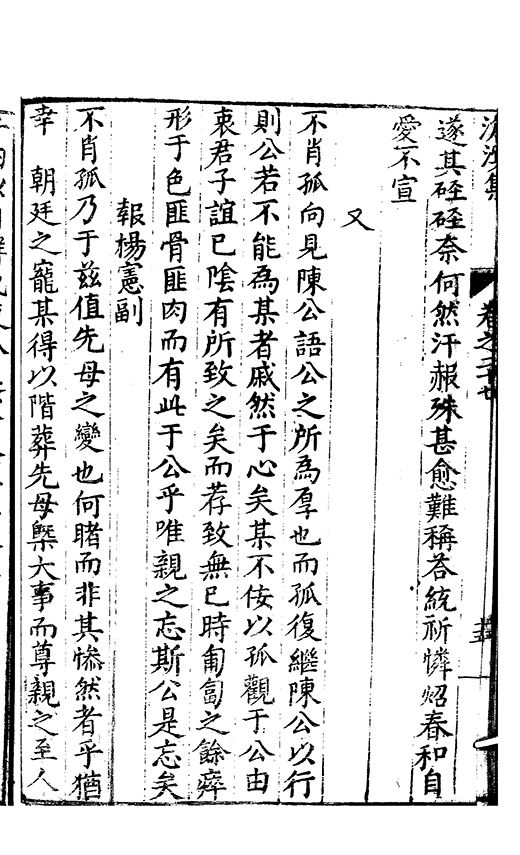 遂其硜硜奈何然汗赧殊甚愈難稱荅統祈憐炤春和自
愛不宣
又
不肖孤向見陳公語公之所為厚也而孤復繼陳公以行
則公若不能為某者戚然于心矣某不佞以孤觀于公由
衷君子誼已陰有所致之矣而荐致無已時匍匐之餘瘁
形于色匪骨匪肉而有此于公乎唯親之忘斯公是忘矣
報楊憲副
不肖孤乃于茲值先母之變也何睹而非其慘然者乎猶
幸　朝廷之寵某得以階葬先母槩大事而尊親之至人